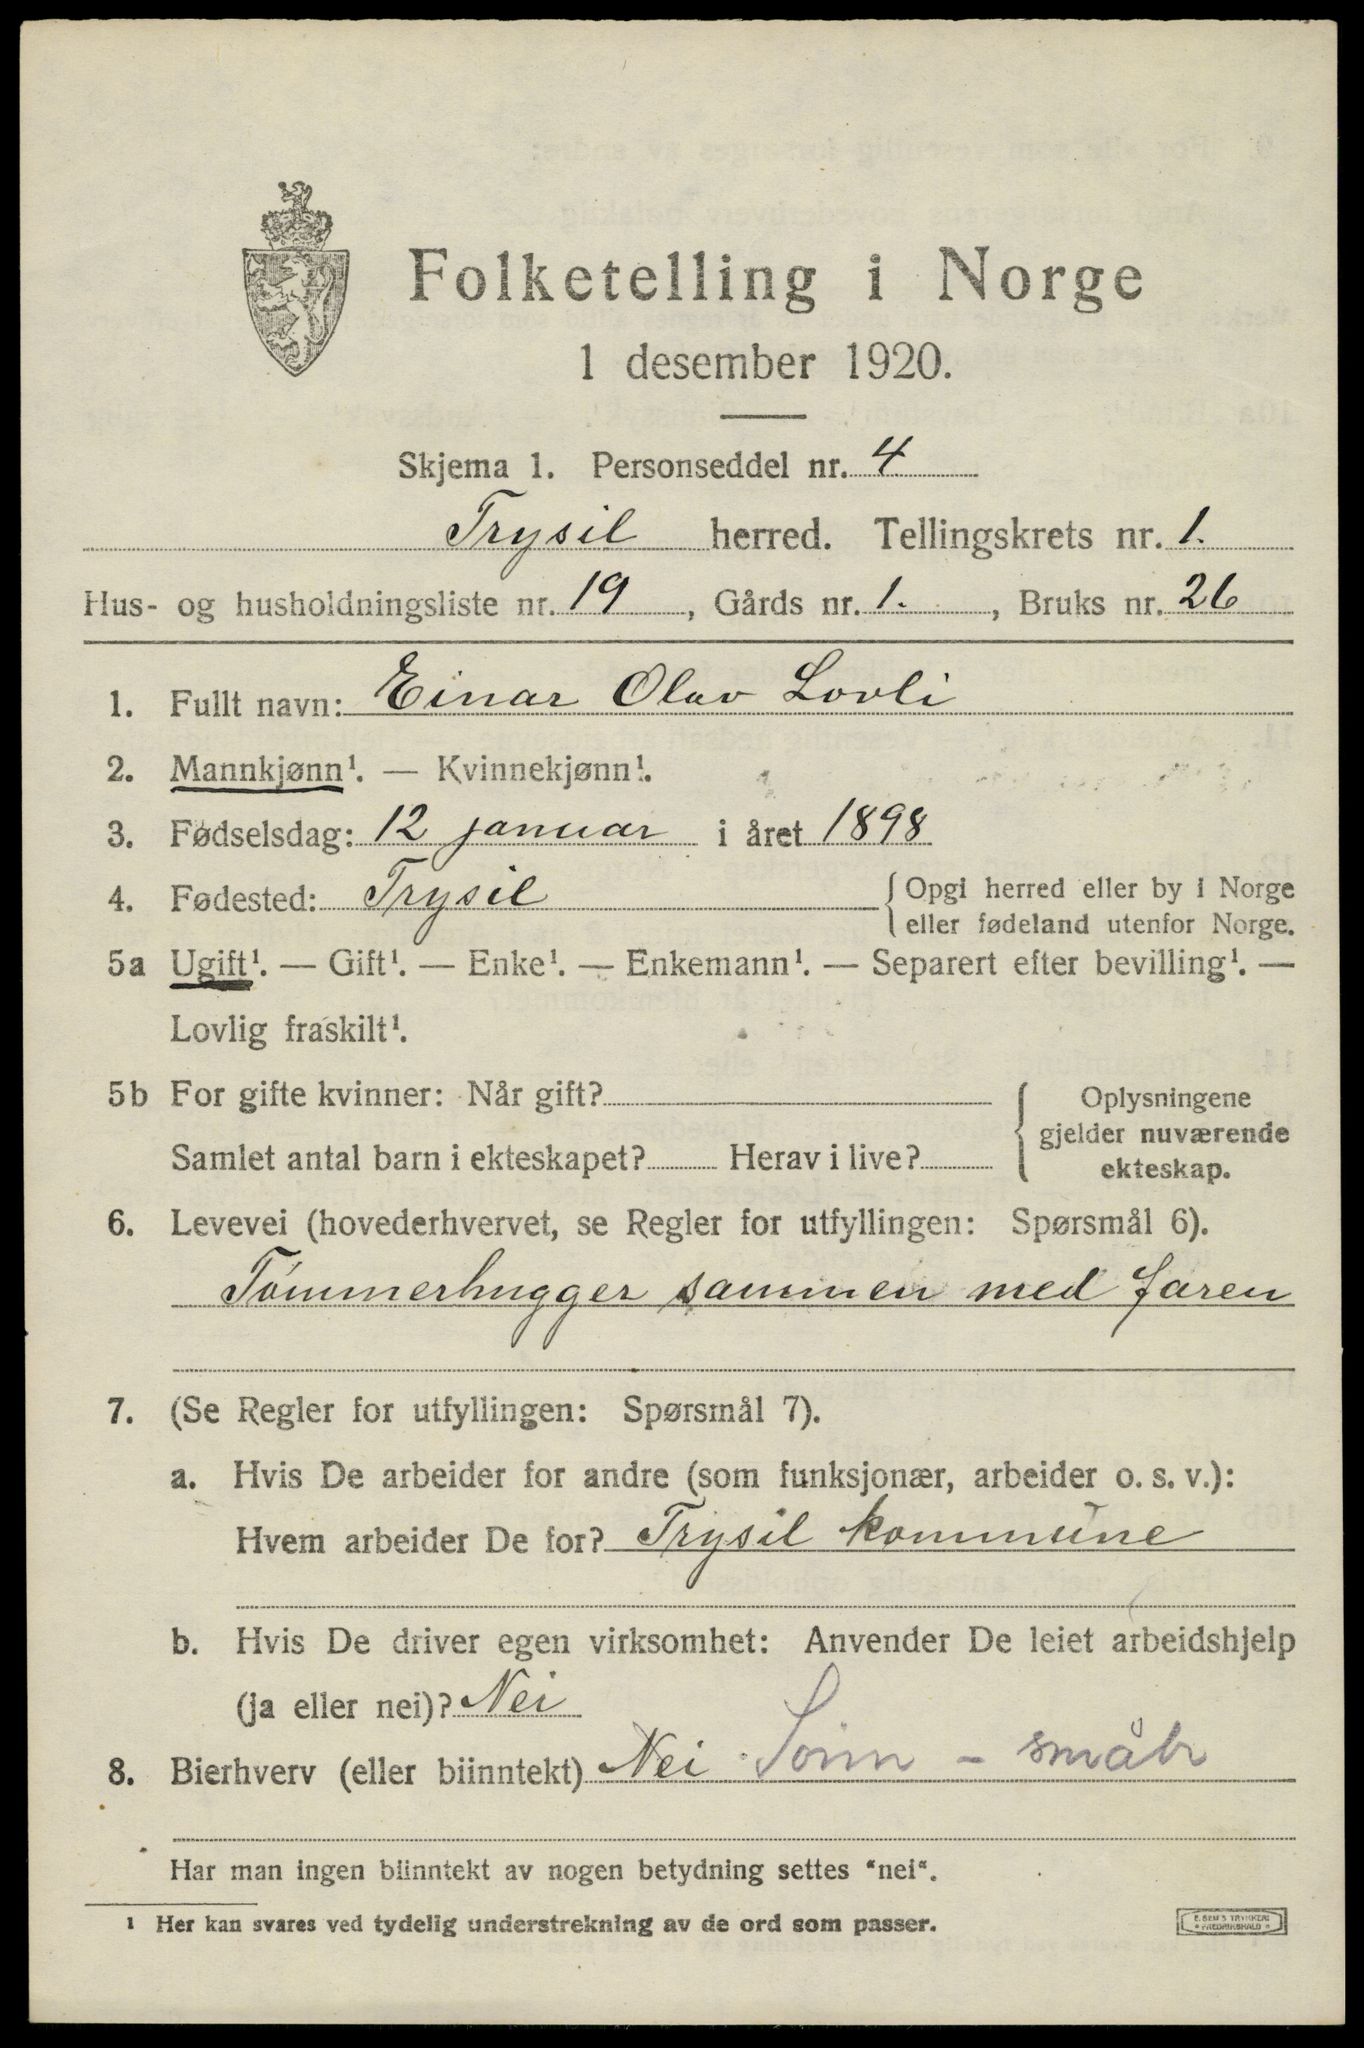 Folketelling i Norge
1 desember 1920.
Skjema 1. Personseddel nr. 4
Trysil herred. Tellingskrets nr. 1.
Hus- og husholdningsliste nr. 19, Gårds nr. 1., Bruks nr. 26
1. Fullt navn: Einar Olav Lovli
2. Mannkjønn¹. — Kvinnekjønn¹.
3. Fødselsdag: 12 januar i året 1898
4. Fødested: Trysil { Opgi herred eller by i Norge
eller fødeland utenfor Norge.
5a Ugift¹. — Gift¹. — Enke¹. — Enkemann¹. — Separert efter bevilling¹. —
Lovlig fraskilt¹.
5b For gifte kvinner: Når gift?
Samlet antal barn i ekteskapet? Herav i live?
{ Oplysningene
gjelder nuværende
ekteskap.
6. Levevei (hovederhvervet, se Regler for utfyllingen: Spørsmål 6).
Tømmerhugger sammen med faren
7. (Se Regler for utfyllingen: Spørsmål 7).
a. Hvis De arbeider for andre (som funksjonær, arbeider o. s. v.):
Hvem arbeider De for? Trysil kommune
b. Hvis De driver egen virksomhet: Anvender De leiet arbeidshjelp
(ja eller nei)? Nei
8. Bierhverv (eller biinntekt) Nei Sønn - småbr
Har man ingen biinntekt av nogen betydning settes "nei".
¹ Her kan svares ved tydelig understrekning av de ord som passer.
E. SEM'S TRYKKERI
FREDRIKSHALD